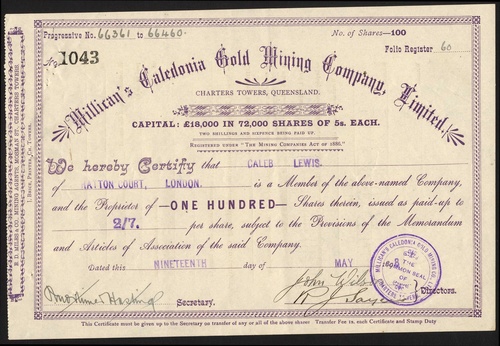 Progressive No. 66361 to 66460.
No. of Shares—100
No 1043
Folio Register 60
Millican's Caledonia Gold Mining Company, Limited.
CHARTERS TOWERS, QUEENSLAND.
CAPITAL: £18,000 IN 72,000 SHARES OF 5s. EACH.
TWO SHILLINGS AND SIXPENCE BEING PAID UP.
REGISTERED UNDER "THE MINING COMPANIES ACT OF 1886."
We hereby Certify that CALEB LEWIS.
of HATTON COURT, LONDON. is a Member of the above-named Company,
and the Proprietor of —ONE HUNDRED— Shares therein, issued as paid-up to
2/7. per share, subject to the Provisions of the Memorandum
and Articles of Association of the said Company.
Dated this NINETEENTH day of MAY
John
Secretary.
Directors.
MILLICAN'S CALEDONIA GOLD MINING CO.
THE COMMON SEAL OF
CHARTERS TOWERS
This Certificate must be given up to the Secretary on transfer of any or all of the above shares Transfer Fee 1s. each Certificate and Stamp Duty
MINING AGENTS, MOSMAN ST. CHARTERS TOWERS.